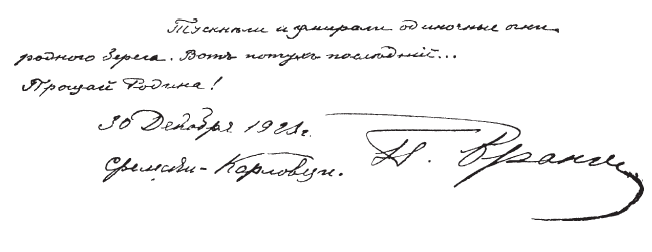 Тускнѣли и умирали одиночные огни
родного берега. Вотъ потухъ послѣдній...
Прощай Родина!
30 Декабря 1923 г.
Сремски-Карловци.
П. Врангель